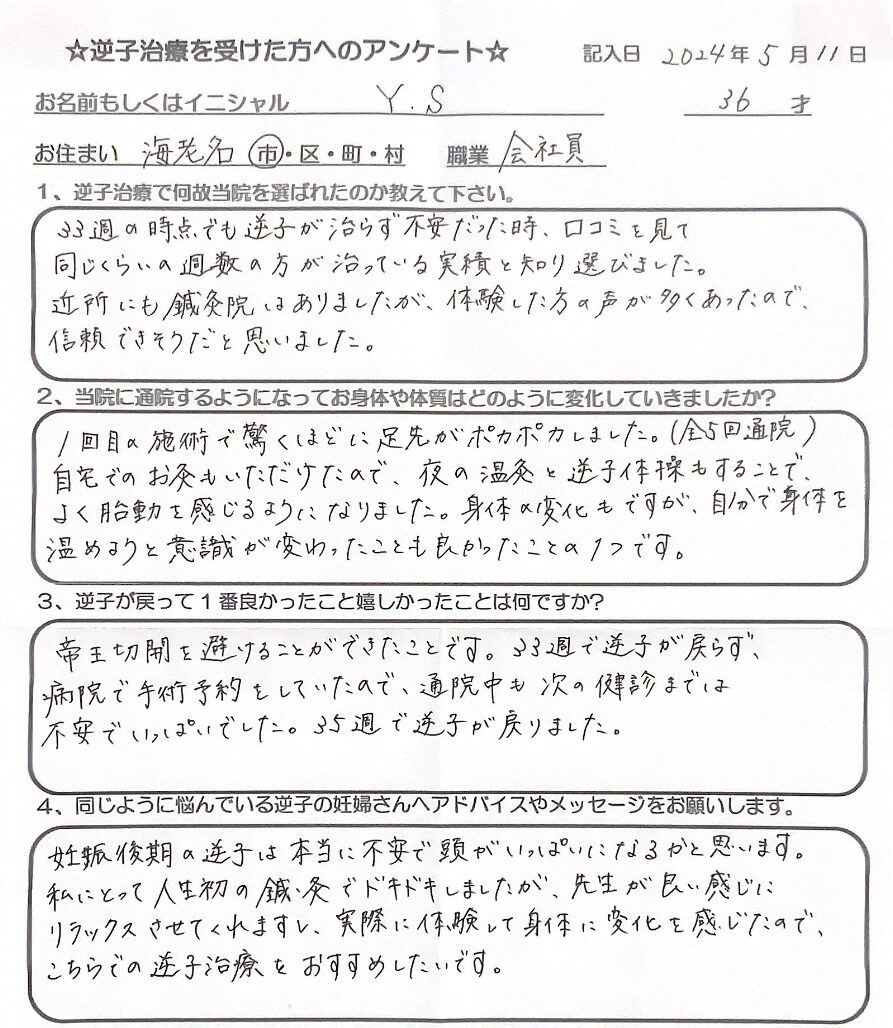 ☆逆子治療を受けた方へのアンケート☆ 記入日 2024年5月11日
お名前もしくはイニシャル Y.S 36才
お住まい 海老名 市・区・町・村 職業 会社員
1、逆子治療で何故当院を選ばれたのか教えて下さい。
33週の時点でも逆子が治らず不安だった時、口コミを見て
同じくらいの週数の方が治っている実績を知り選びました。
近所にも鍼灸院はありましたが、体験した方の声が多くあったので、
信頼できそうだと思いました。
2、当院に通院するようになってお身体や体質はどのように変化していきましたか?
1回目の施術で驚くほどに足先がポカポカしました。(全5回通院)
自宅でのお灸もいただけたので、夜の温灸と逆子体操もすることで、
よく胎動を感じるようになりました。身体の変化もですが、自分で身体を
温めようと意識が変わったことも良かったことの1つです。
3、逆子が戻って1番良かったこと嬉しかったことは何ですか?
帝王切開を避けることができたことです。33週で逆子が戻らず、
病院で手術予約をしていたので、通院中も次の健診までは
不安でいっぱいでした。35週で逆子が戻りました。
4、同じように悩んでいる逆子の妊婦さんへアドバイスやメッセージをお願いします。
妊娠後期の逆子は本当に不安で頭がいっぱいになるかと思います。
私にとって人生初の鍼・灸でドキドキしましたが、先生が良い感じに
リラックスさせてくれますし、実際に体験して身体に変化を感じたので、
こちらでの逆子治療をおすすめしたいです。